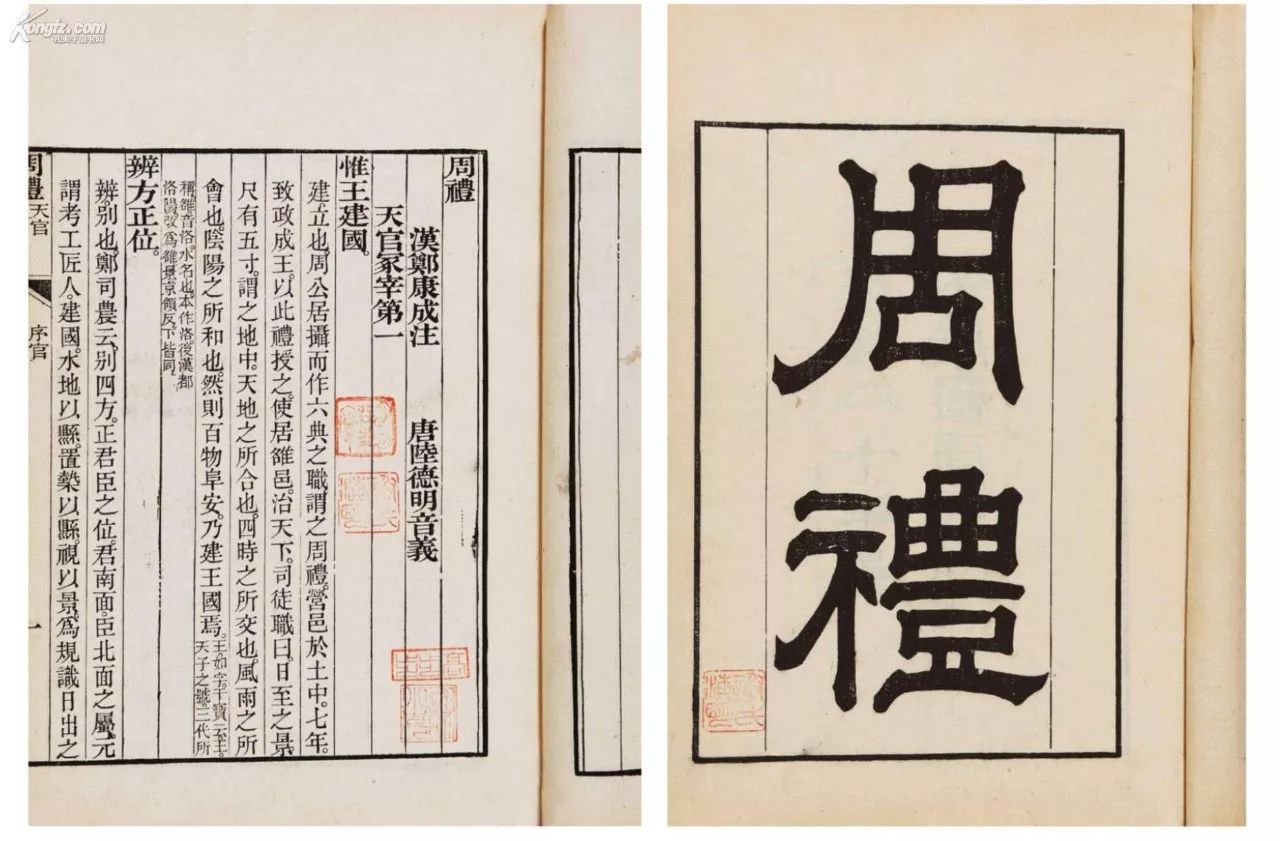 Kongfz.com
孔夫子舊书网
周禮
漢鄭康成注 唐陸德明音義
天官冢宰第一
惟王建國。
建立也。周公居攝而作六典之職。謂之周禮。營邑於土中。七年。
致政成王。以此禮授之。使居雒邑。治天下。司徒職曰。日至之景。
尺有五寸。謂之地中。天地之所合也。四時之所交也。風雨之所
會也。陰陽之所和也。然則百物阜安。乃建王國焉。王。如字。干寶云。王。
天子之號。三代所
稱。雒音洛。水名也。本作洛。後漢都
洛陽。改爲雒。景。京領反。下皆同。
辨方正位。
辨。別也。鄭司農云。別四方。正君臣之位。君南面。臣北面之屬。元
謂考工。匠人。建國。水地以縣。置槷以縣。視以景。爲規識日出之
周禮 天官 序官 一
周禮